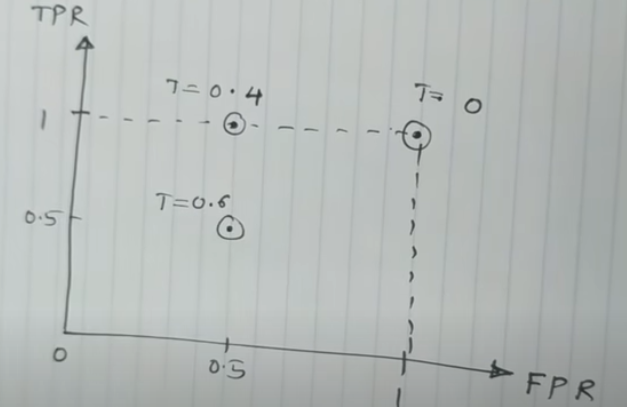 TPR
T=0.4
T= 0
1
T=0.6
0.5
0
0.5
1
FPR